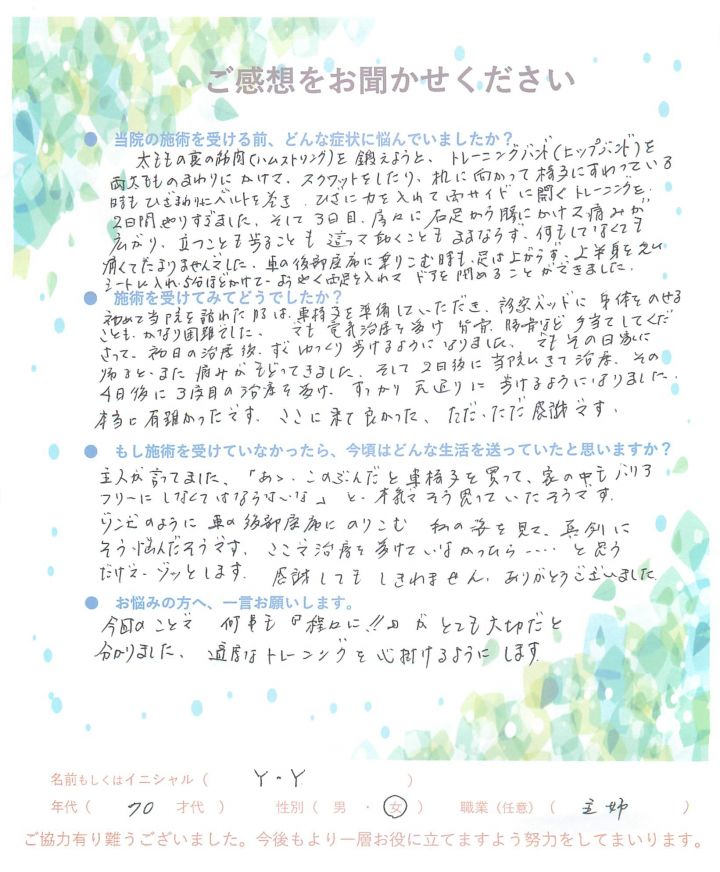 ご感想をお聞かせください
● 当院の施術を受ける前、どんな症状に悩んでいましたか？
太ももの裏の筋肉(ハムストリング)を鍛えようと、トレーニングバンド(ヒップバンド)を
両太もものまわりにかけて、スクワットをしたり、机に向かって椅子にすわっている
時もひざまわりにベルトを巻き、ひざに力を入れて両サイドに開くトレーニングを、
2日間やりすぎました。そして3日目、房々に右足から腰にかけて痛みが
広がり、立つことも歩ることも這って動くこともままならず、何もしなくても
痛くてたまりませんでした。車の後部座席に乗りこむ時も、足は上がらず、上半身を先に
シートに入れ、5分ほどかけて、ようやく両足を入れてドアを閉めることができました。
● 施術を受けてみてどうでしたか？
初めて当院を訪れた時は、車椅子を準備していただき、診察ベッドに身体をのせる
ことも、かなり困難でした。でも電気治療を受け、骨など手当てしてくだ
さって、初日の治療後、すぐゆっくり歩けるようになりました。でもその日家に
帰ると、また痛みがもどってきました。そして2日後に当院にきて治療、その
4日後に3度目の治療を受け、すっかり元通りに歩けるようになりました。
本当に有難かったです。ここに来て良かった、ただ、ただ感謝です。
● もし施術を受けていなかったら、今頃はどんな生活を送っていたと思いますか？
主人が言ってました、「あゝ、このぶんだと車椅子を買って、家の中もバリア
フリーにしなくてはならないな」と、本気でそう思っていたそうです。
ゾンビのように車の後部座席にのりこむ私の姿を見て、真剣に
そう悩んだそうです。ここで治療を受けていなかったら‥‥と思う
だけで、ゾッとします。感謝してもしきれません。ありがとうございました。
● お悩みの方へ、一言お願いします。
今回のことで何事も『程々に!!』がとても大切だと
分かりました。適度なトレーニングを心掛けるようにします。
名前もしくはイニシャル（ Y・Y ）
年代（ 70 才代 ） 性別（ 男 ・ 女 ） 職業（任意）（ 主婦 ）
ご協力有り難うございました。今後もより一層お役に立てますよう努力をしてまいります。